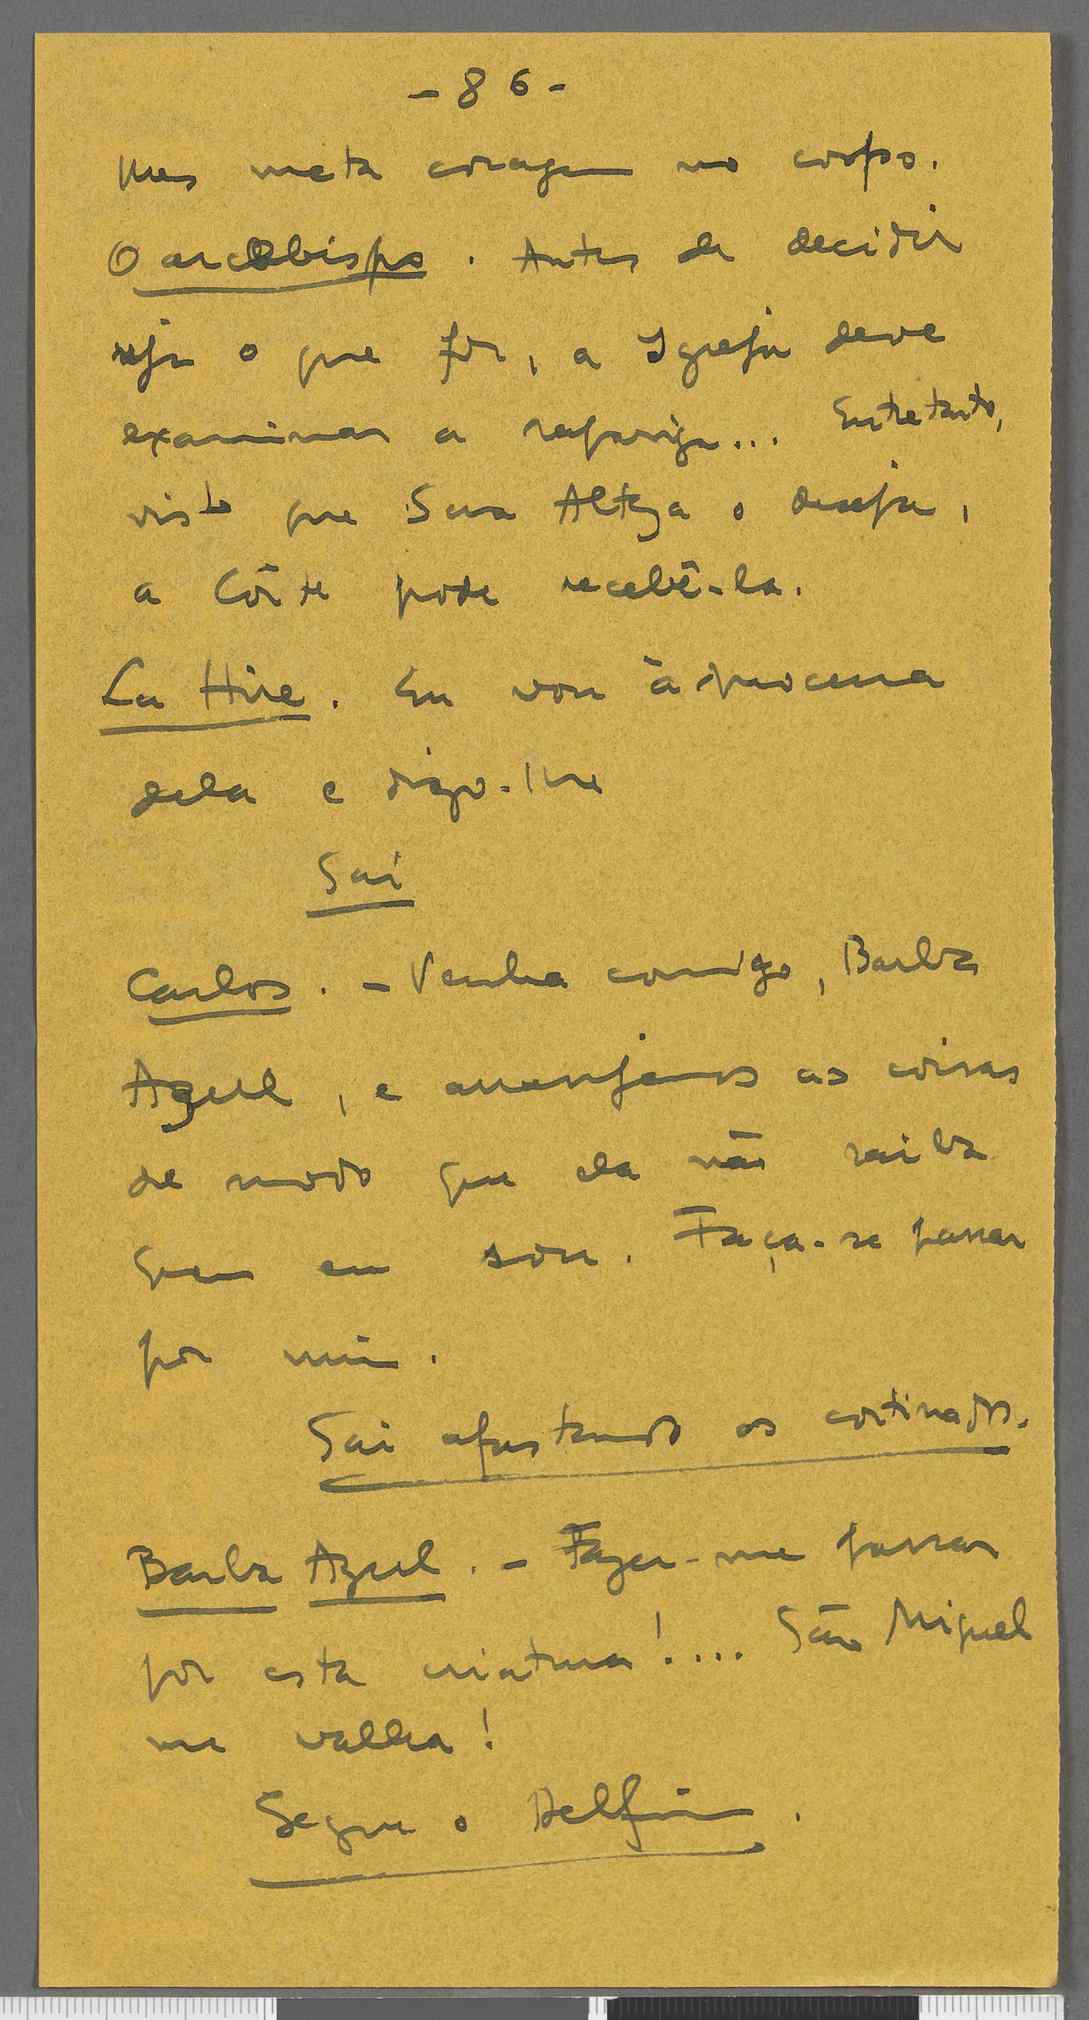 - 86 -
lhes meta coragem no corpo.
O arcebispo. Antes de decidir
seja o que for, a Igreja deve
examinar a rapariga... Entretanto,
visto que Sua Alteza o deseja,
a Côrte pode recebê-la.
La Hire. Eu vou à procura
dela e digo-lhe
Sai
Carlos. - Venha comigo, Barba
Azul, e arranjemos as coisas
de modo que ela não saiba
quem eu sou. Faça-se passar
por mim.
Sai afastando os cortinados.
Barba Azul. - Fazer-me passar
por esta criatura!.... São Miguel
me valha!
Segue o Delfim.